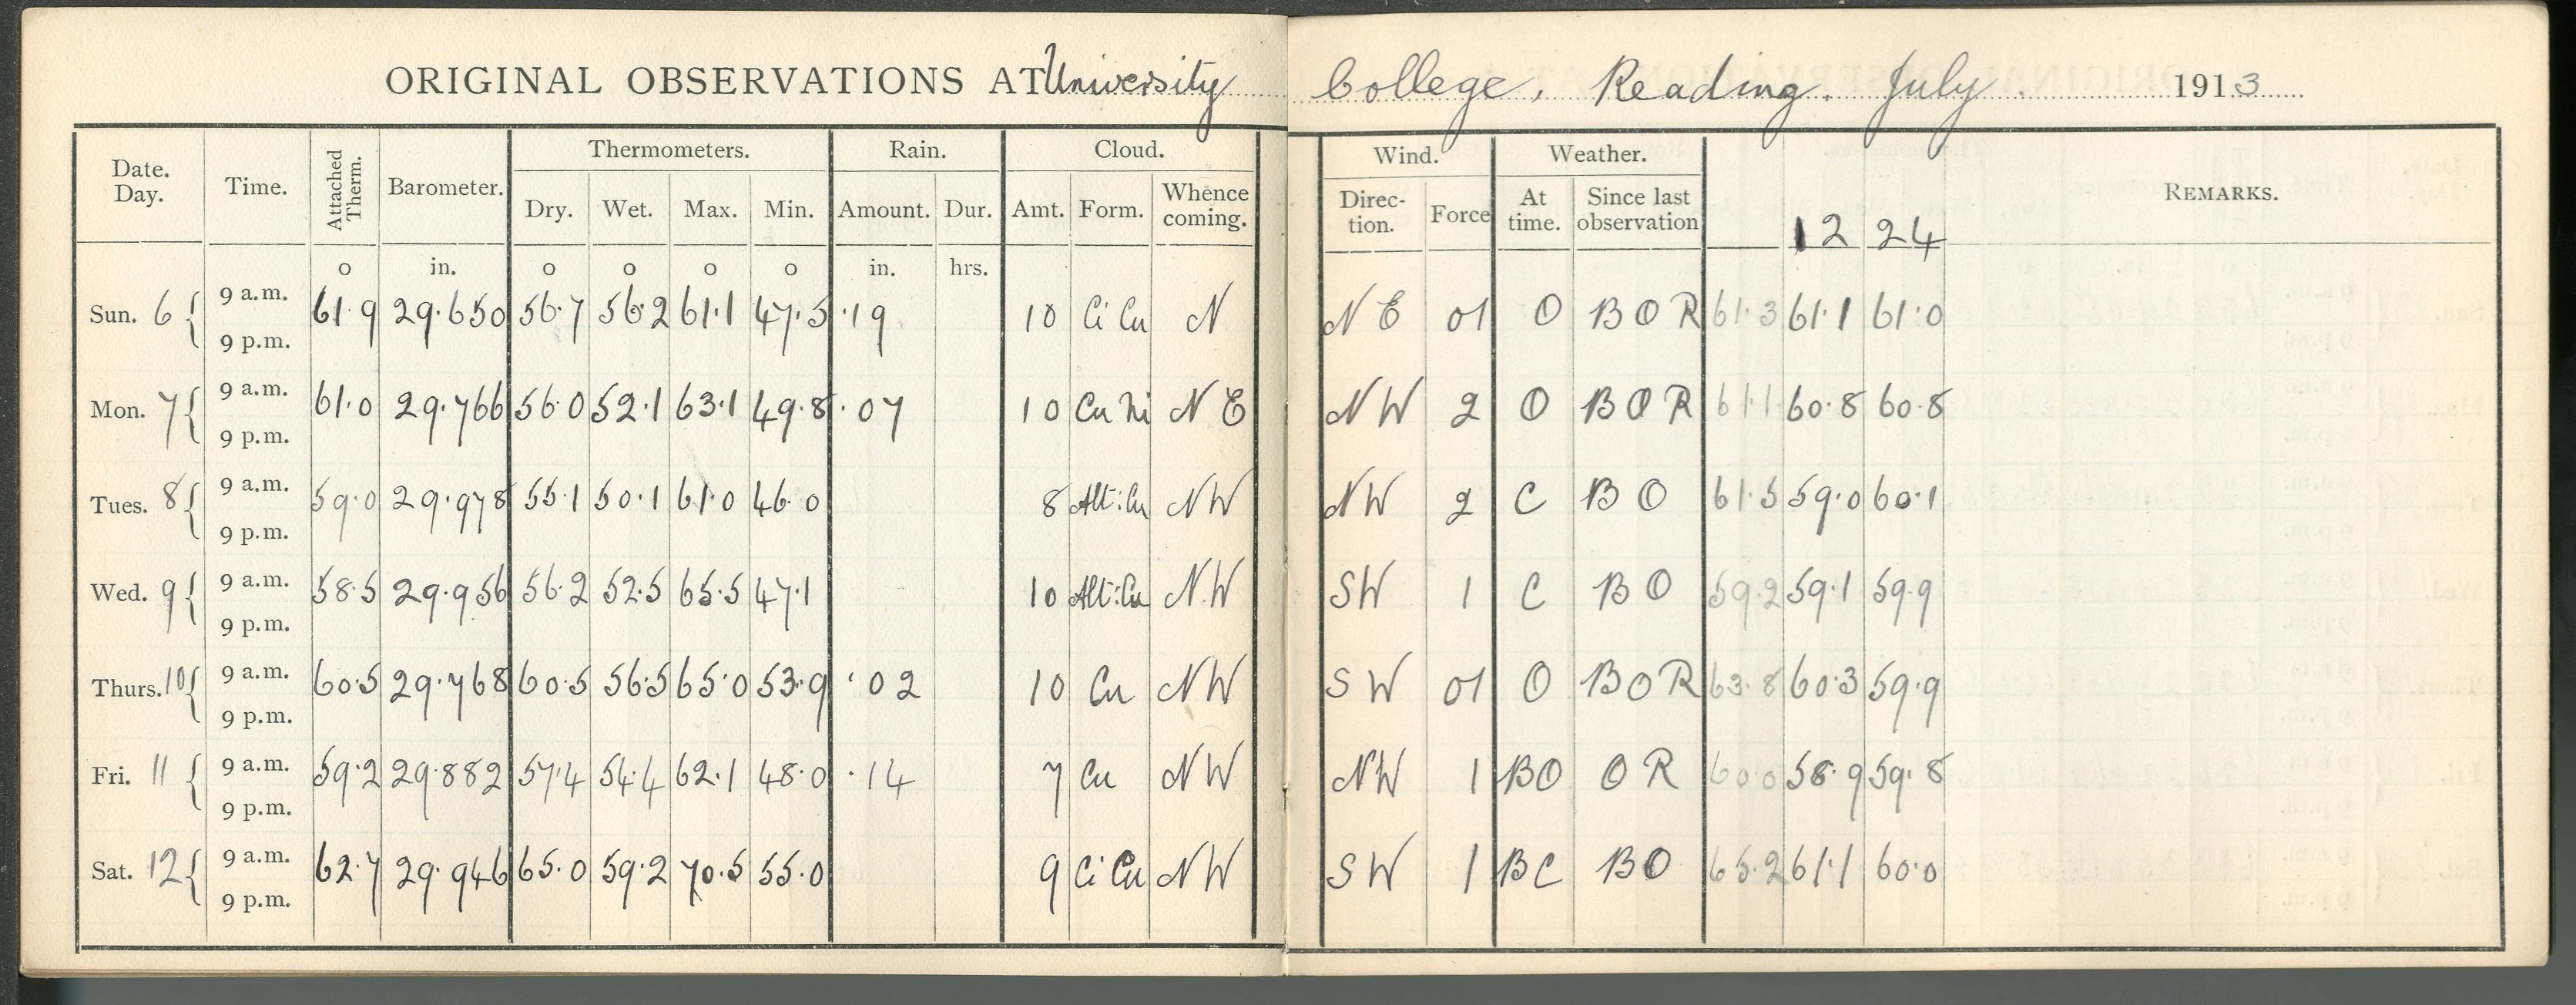 ORIGINAL OBSERVATIONS AT University College, Reading. July. 1913
Date. Day. Time. Attached Therm. Barometer. Thermometers. Rain. Cloud. Wind. Weather. REMARKS.
Dry. Wet. Max. Min. Amount. Dur. Amt. Form. Whence coming. Direc- tion. Force At time. Since last observation 12 24
o in. o o o o in. hrs.
Sun. 6 { 9 a.m. 61.9 29.650 56.7 56.2 61.1 47.5 .19 10 Ci Cu N N E 01 O B O R 61.3 61.1 61.0
9 p.m.
Mon. 7 { 9 a.m. 61.0 29.766 56.0 52.1 63.1 49.8 .07 10 Cu Ni N E N W 2 O B O R 61.1 60.8 60.8
9 p.m.
Tues. 8 { 9 a.m. 59.0 29.978 55.1 50.1 61.0 46.0 8 Alt:Cu N W N W 2 C B O 61.5 59.0 60.1
9 p.m.
Wed. 9 { 9 a.m. 58.5 29.956 56.2 52.5 65.5 47.1 10 Alt:Cu N.W S W 1 C B O 59.2 59.1 59.9
9 p.m.
Thurs. 10 { 9 a.m. 60.5 29.768 60.5 56.5 65.0 53.9 .02 10 Cu N W S W 01 O B O R 63.8 60.3 59.9
9 p.m.
Fri. 11 { 9 a.m. 59.2 29.882 57.4 54.4 62.1 48.0 .14 7 Cu N W N W 1 BO O R 60.0 58.9 59.8
9 p.m.
Sat. 12 { 9 a.m. 62.7 29.946 65.0 59.2 70.5 55.0 9 Ci Cu N W S W 1 BC B O 65.2 61.1 60.0
9 p.m.